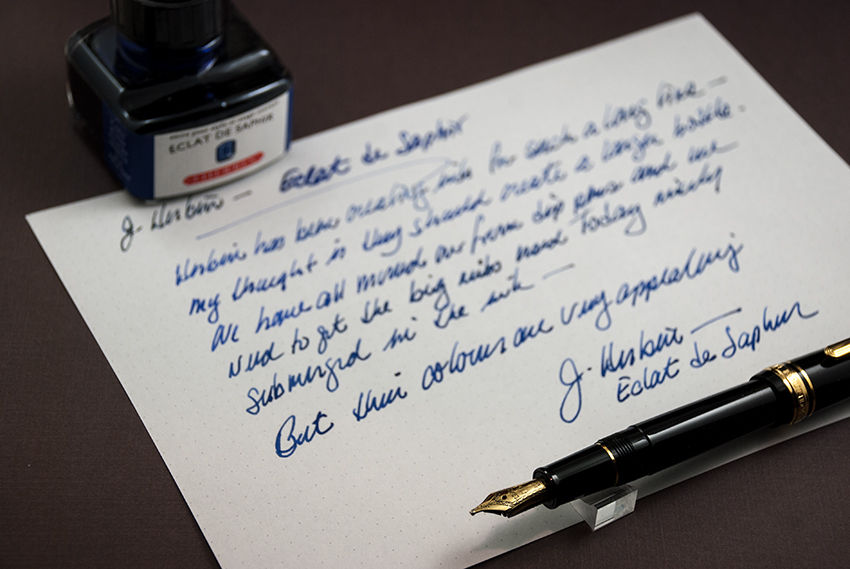 ECLAT DE SAPHIR
J. Herbin — Eclat de Saphir
Herbin has been creating inks for such a long time —
my thought is they should create a larger bottle.
We have all moved on from dip pens and we
need to get the big nibs used Today nicely
submerged in the ink —
But their colours are very appealing
J. Herbin —
Eclat de Saphir